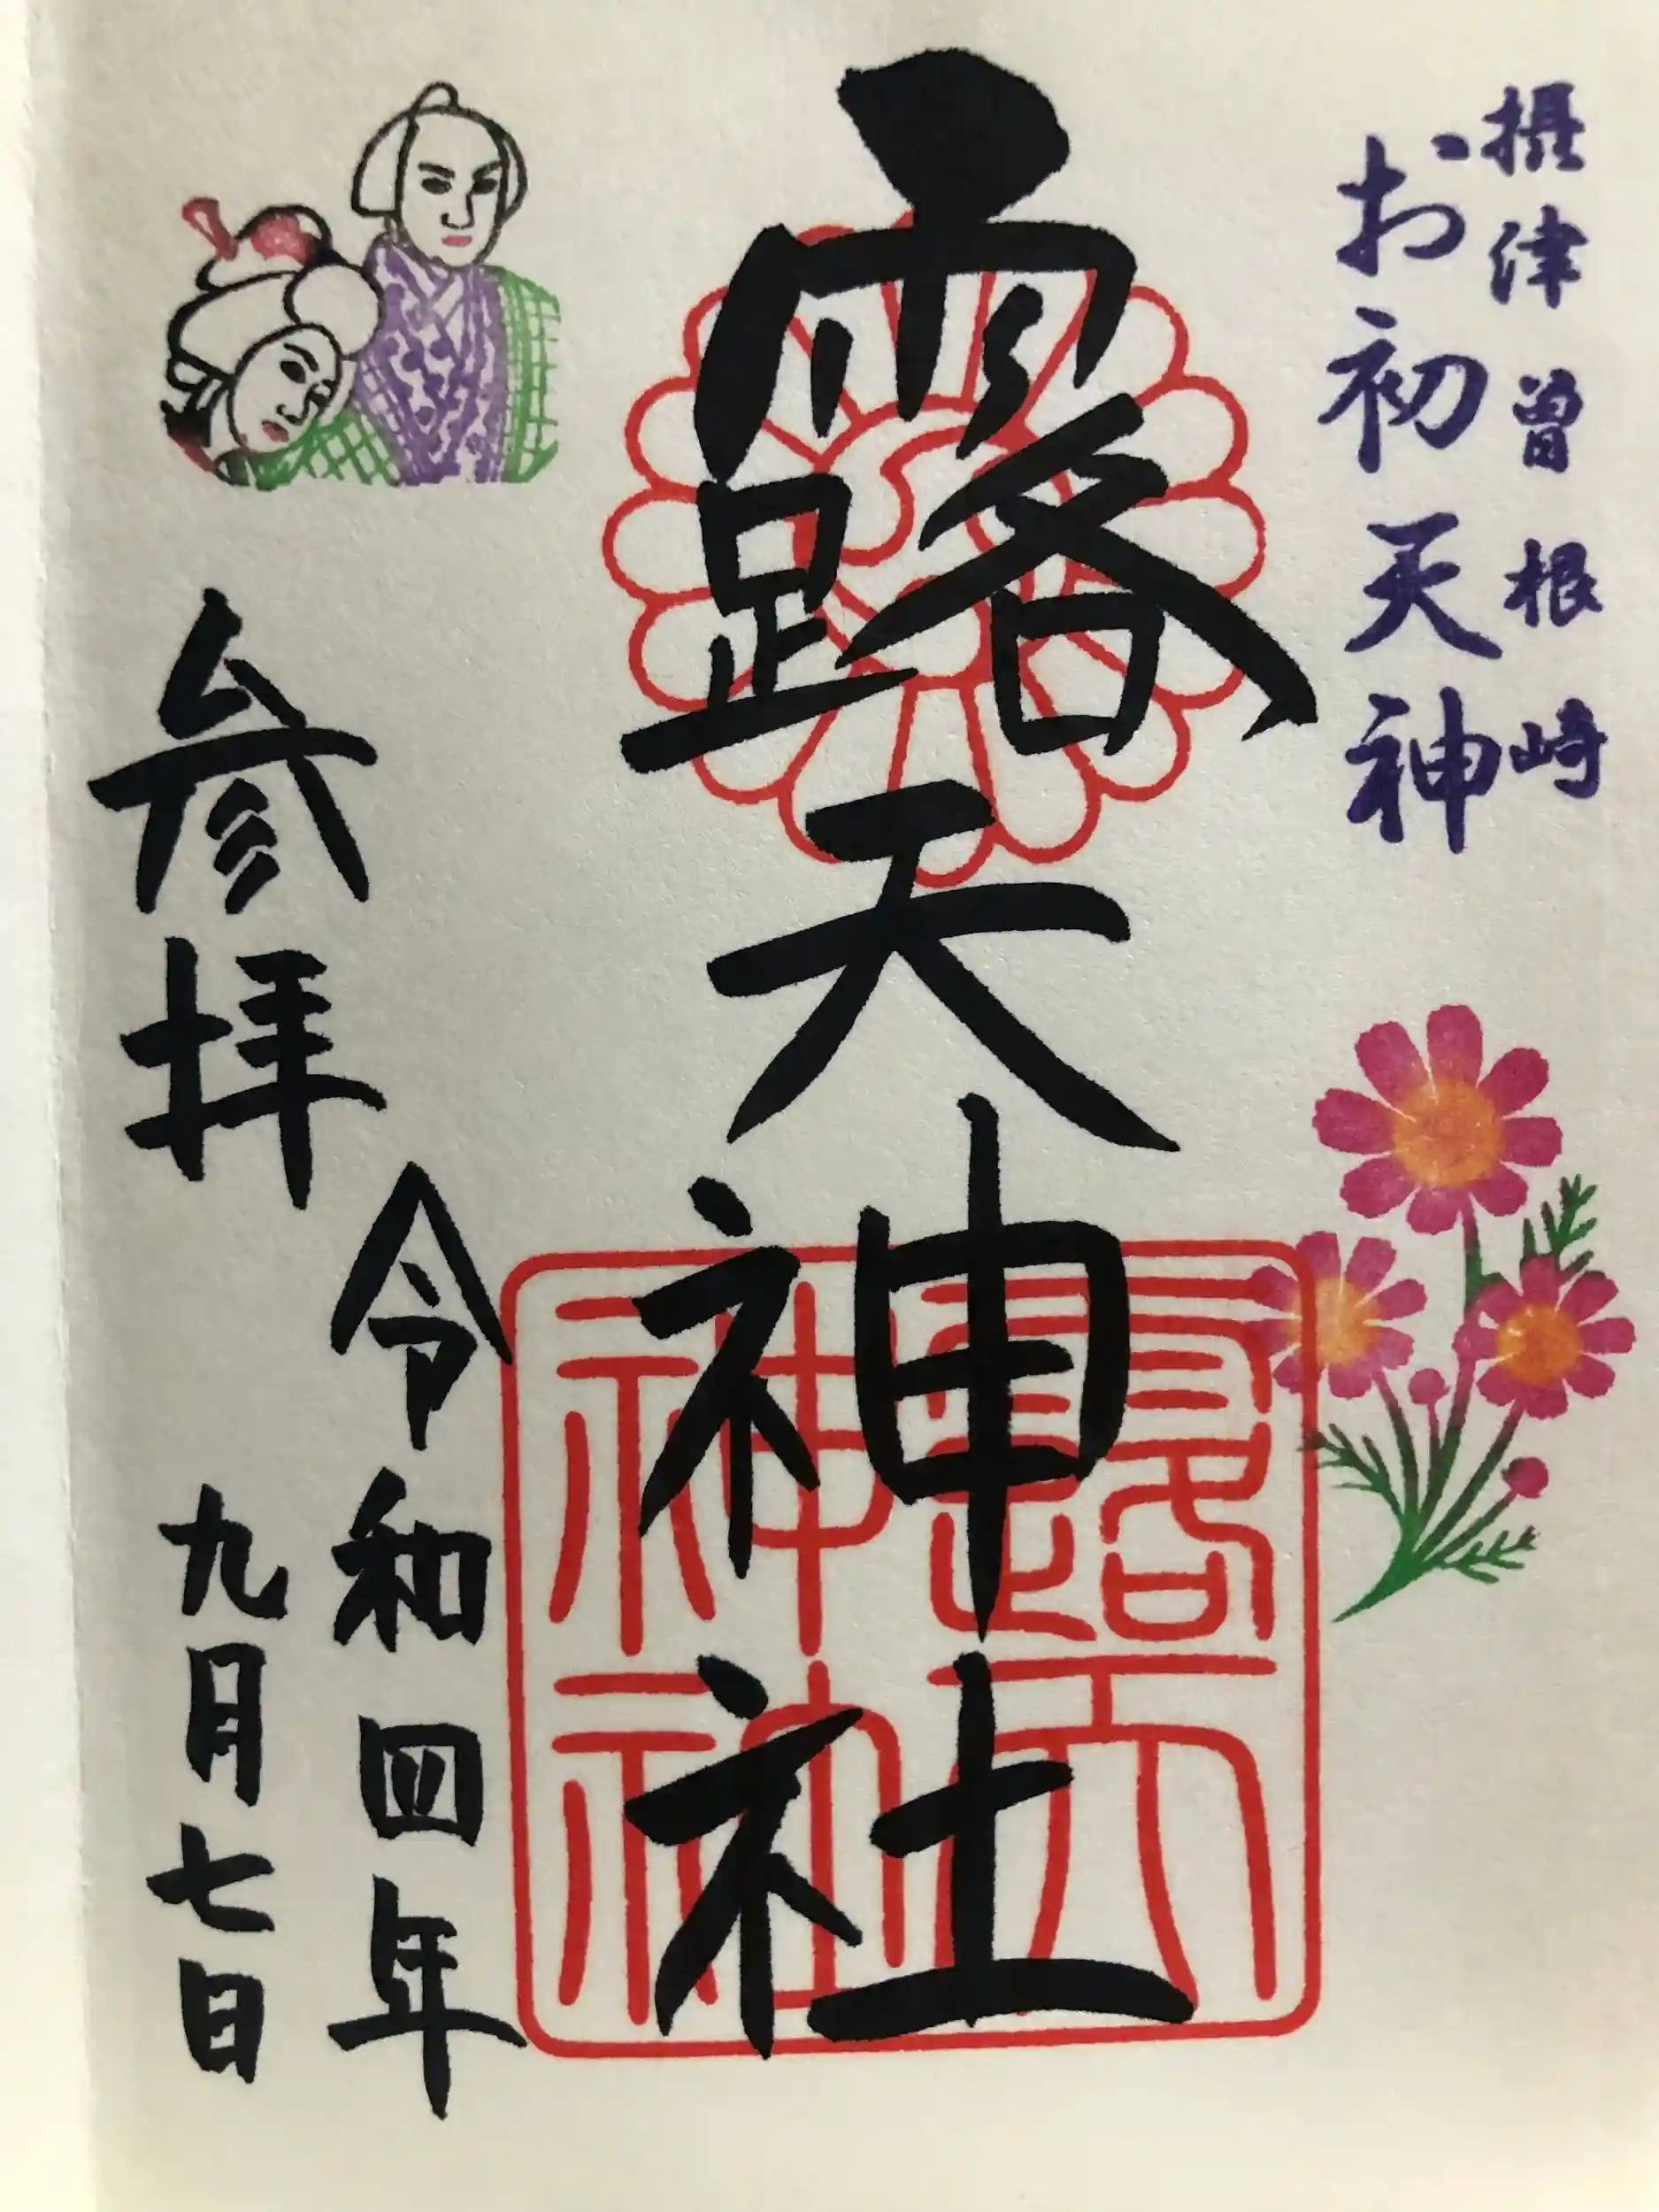 摂津曽根崎
お初天神
露天神社
露天
神社
参拝
令和四年
九月七日